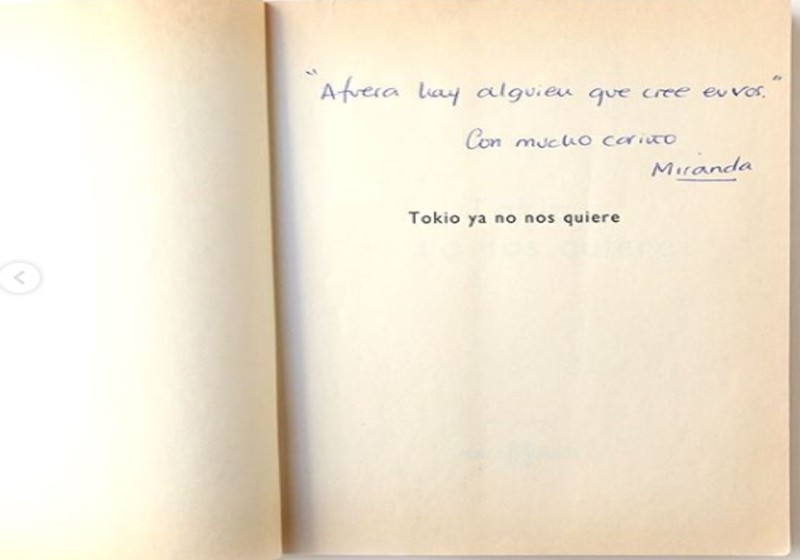 "Afuera hay alguien que cree en vos."
Con mucho cariño
Miranda
Tokio ya no nos quiere